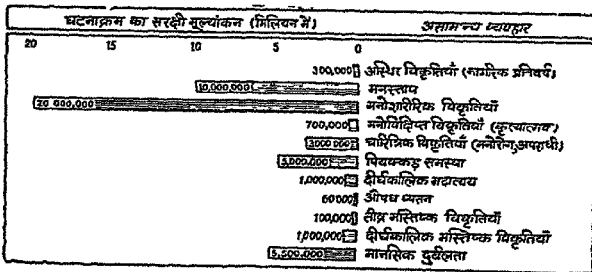 घटनाक्रम का सरक्षी मूल्यांकन (मिलियन में) असामान्य व्यवहार
20 15 10 5 0
300,000 अस्थिर विकृतियाँ (नागरिक प्रतिवर्ष)
10,000,000 मनस्ताप
20 000,000 मनोशारीरिक विकृतियाँ
700,000 मनोविक्षिप्त विकृतियाँ (कृत्यात्मक)
3000000 चारित्रिक विकृतियाँ (मनोरोग, अपराधी)
5,000,000 पियक्कड़ समस्या
1,000,000 दीर्घकालिक मदात्यय
60000 औषध व्यसन
100,000 तीव्र मस्तिष्क विकृतियाँ
1,000,000 दीर्घकालिक मस्तिष्क विकृतियाँ
5,500,000 मानसिक दुर्बलता